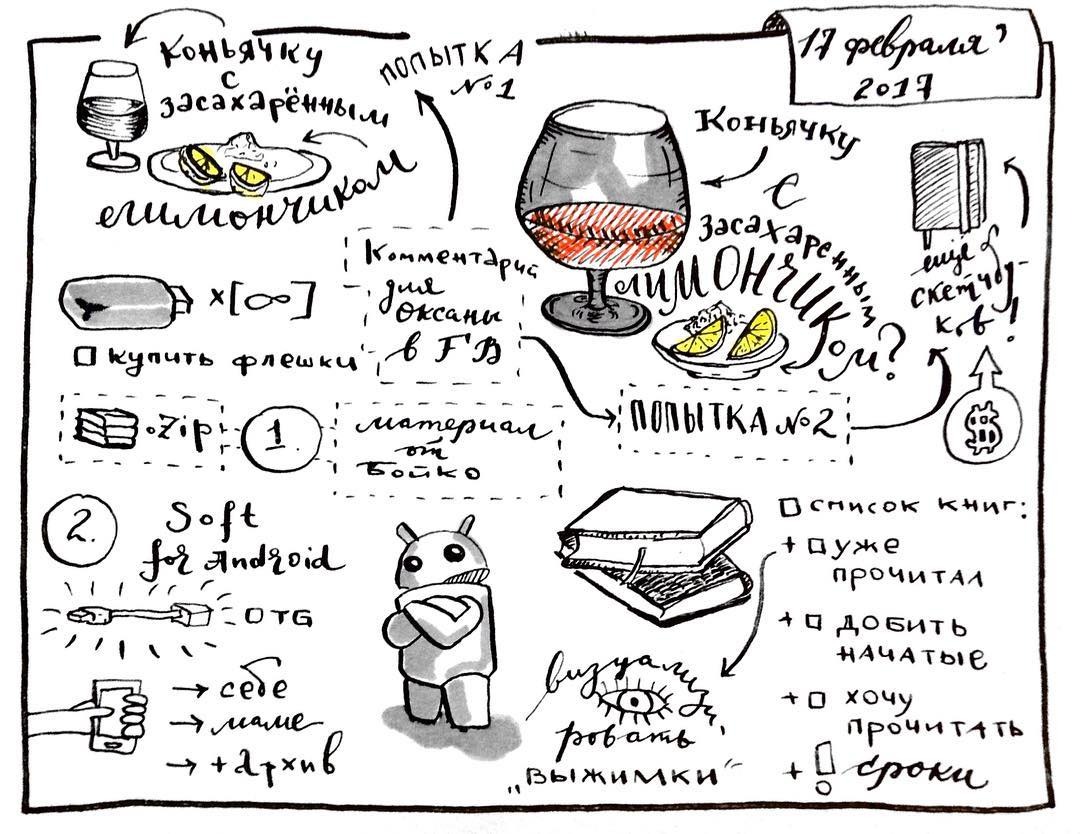 17 февраля'
2017
коньячку
с
засахарённым
лимончиком
попытка
№1
Комментарий
для
Оксаны
в FB
Коньячку
с
засахаренным
лимончиком?
ещё
скетчбу-
ков!
$
×[∞]
купить флешки
попытка №2
.zip
1.
материал
от
Бойко
2.
Soft
for Android
OTG
→ себе
→ маме
→ + архив
список книг:
+ уже
прочитал
+ добить
начатые
+ хочу
прочитать
+ ! сроки
визуализи-
ровать
„выжимки“